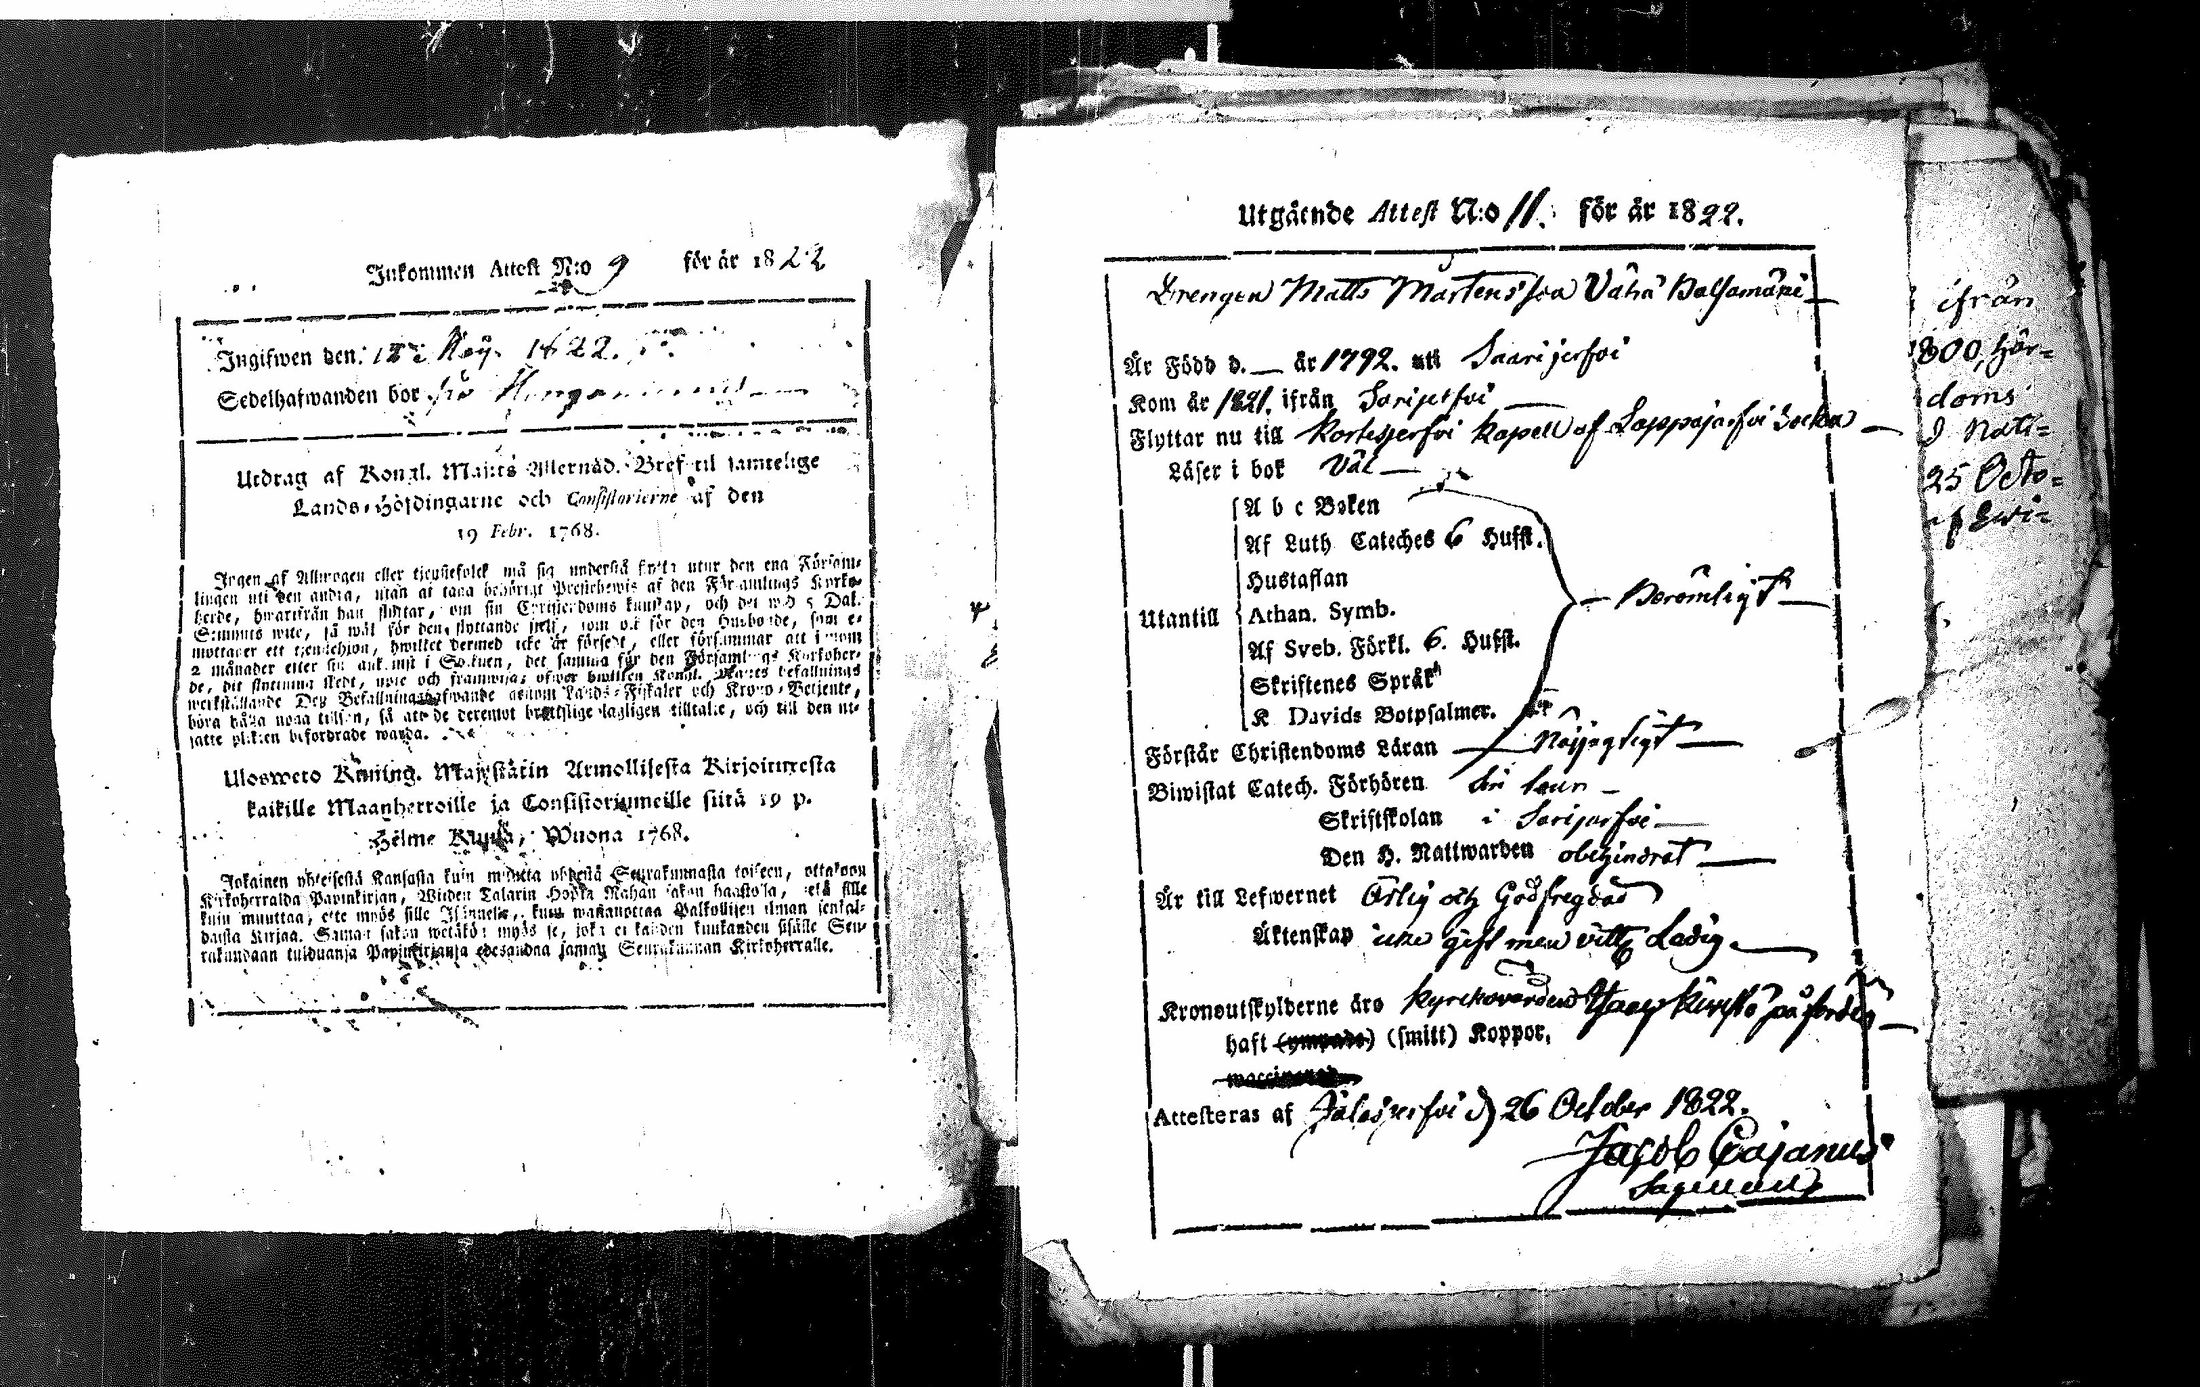 Inkommen Attest N:o 9 för år 1822
Ingifwen den 1822.
Sedelhafwanden bor
Utdrag af Kongl. Maj:ts Allernåd. Bref til samtelige
Lands-Höfdingarne och Consistorierne af den
19 Febr. 1768.
Ingen af Allmogen eller tjenstefolck må sig understå flytta utur den ena Försam-
lingen uti den andra, utan at taga behörigt Prestebewis af den Församlings Kyrko-
herde, hwarifrån han flyttar, om sin Christendoms kunskap, och det wid 5 Dal.
S:mynts wite, så wäl för den flyttande sjelf, som ock för den Husbonde, som e-
mottager ett tjenstehjon, hwilket dermed icke är försedt, eller försummar att inom
2 månader efter sin ankomst i Soknen, det samma för den Församlings Kyrkoher-
de, dit flyttning skedt, upte och framwisa; öfwer hwilken Kongl. Maj:ts befallnings
werkställande Des Befallningshafwande genom Lands-Fiskaler och Krono-Betjente,
böra hålla noga tillsyn, så att de deremot brottslige lagligen tilltalte, och till den ut-
satte plikten befordrade warda.
Ulosweto Kuning. Majestätin Armollisesta Kirjoituxesta
kaikille Maanherroille ja Consistoriumeille siitä 19 p.
Helme Kuusa, Wuona 1768.
Jokainen yhteisestä Kansasta kuin muutta yhdestä Seurakunnasta toiseen, ottakoon
Kirkoherralda Papinkirjan, Wiiden Talarin Hopia Rahan sakon haastolla, sekä sille
kuin muuttaa, ette myös sille Isännelle, kuin wastanottaa Palkollisen ilman senkal-
daista Kirjaa. Saman sakon wetäkön myös se, joka ei kahden kuukauden sisälle Seu-
rakundaan tulduansa Papinkirjansa edesandaa saman Seurakunnan Kirkoherralle.
Utgående Attest N:o 11. för år 1822.
Drengen Matts Mårtensson Vähä
Är Född d. — år 1792. uti Saarijerfvi
Kom år 1821. ifrån Sarijerfvi —
Flyttar nu till Kortesjerfvi Kapell af Lappajärfvi Sockn —
Läser i bok Väl —
A b c Boken
Af Luth Cateches 6 Hufst.
Hustaflan
Utantill Athan. Symb. — Berömligt —
Af Sveb. Förkl. 6. Hufst.
Skriftenes Språk
K Davids Botpsalmer.
Förstår Christendoms Läran — Nöijagtigt —
Biwistat Catech. Förhören
Skriftskolan i Sarijerfvi —
Den H. Nattwarden obehindrat —
Är till Lefwernet Ärlig och Godfregdad
Äktenskap icke gift men Ledig —
Kronoutskylderne äro Kyrckovärden
haft (ympade) (smitt) Koppor,
waccinerad
Attesteras af Jalasjerfvi d 26 October 1822.
Jacob Cajanus
ifrån
800, hör-
doms
25 Octo-